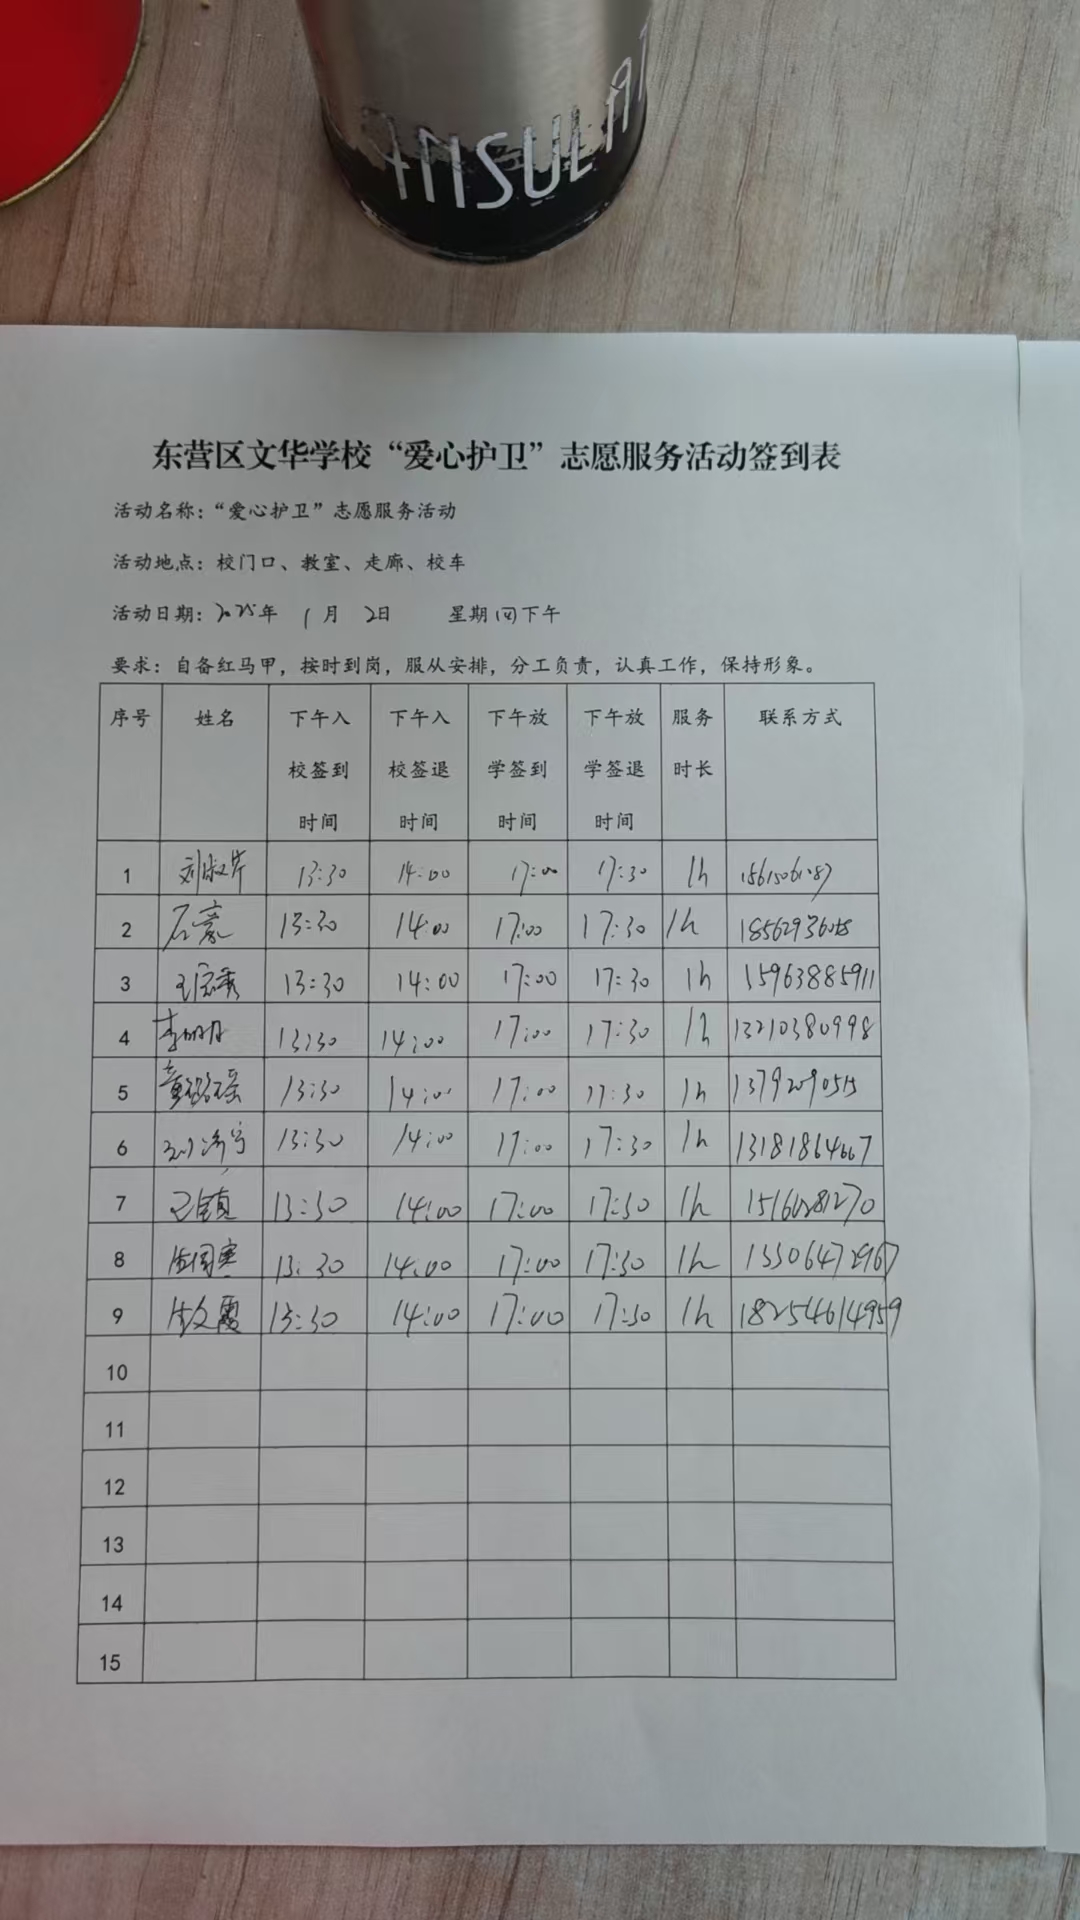 INSULAT
东营区文华学校“爱心护卫”志愿服务活动签到表
活动名称：“爱心护卫”志愿服务活动
活动地点：校门口、教室、走廊、校车
活动日期：2025年 1月 2日 星期四下午
要求：自备红马甲，按时到岗，服从安排，分工负责，认真工作，保持形象。
序号 姓名 下午入校签到时间 下午入校签退时间 下午放学签到时间 下午放学签退时间 服务时长 联系方式
1 刘淑芹 13:30 14:00 17:00 17:30 1h
2 石豪 13:30 14:00 17:00 17:30 1h
3 王宗秀 13:30 14:00 17:00 17:30 1h 15963885911
4 李明月 13:30 14:00 17:00 17:30 1h 13210380998
5 13:30 14:00 17:00 17:30 1h
6 刘济宁 13:30 14:00 17:00 17:30 1h 13181864667
7 13:30 14:00 17:00 17:30 1h 15160281270
8 13:30 14:00 17:00 17:30 1h 13306472967
9 13:30 14:00 17:00 17:30 1h 18254614959
10
11
12
13
14
15